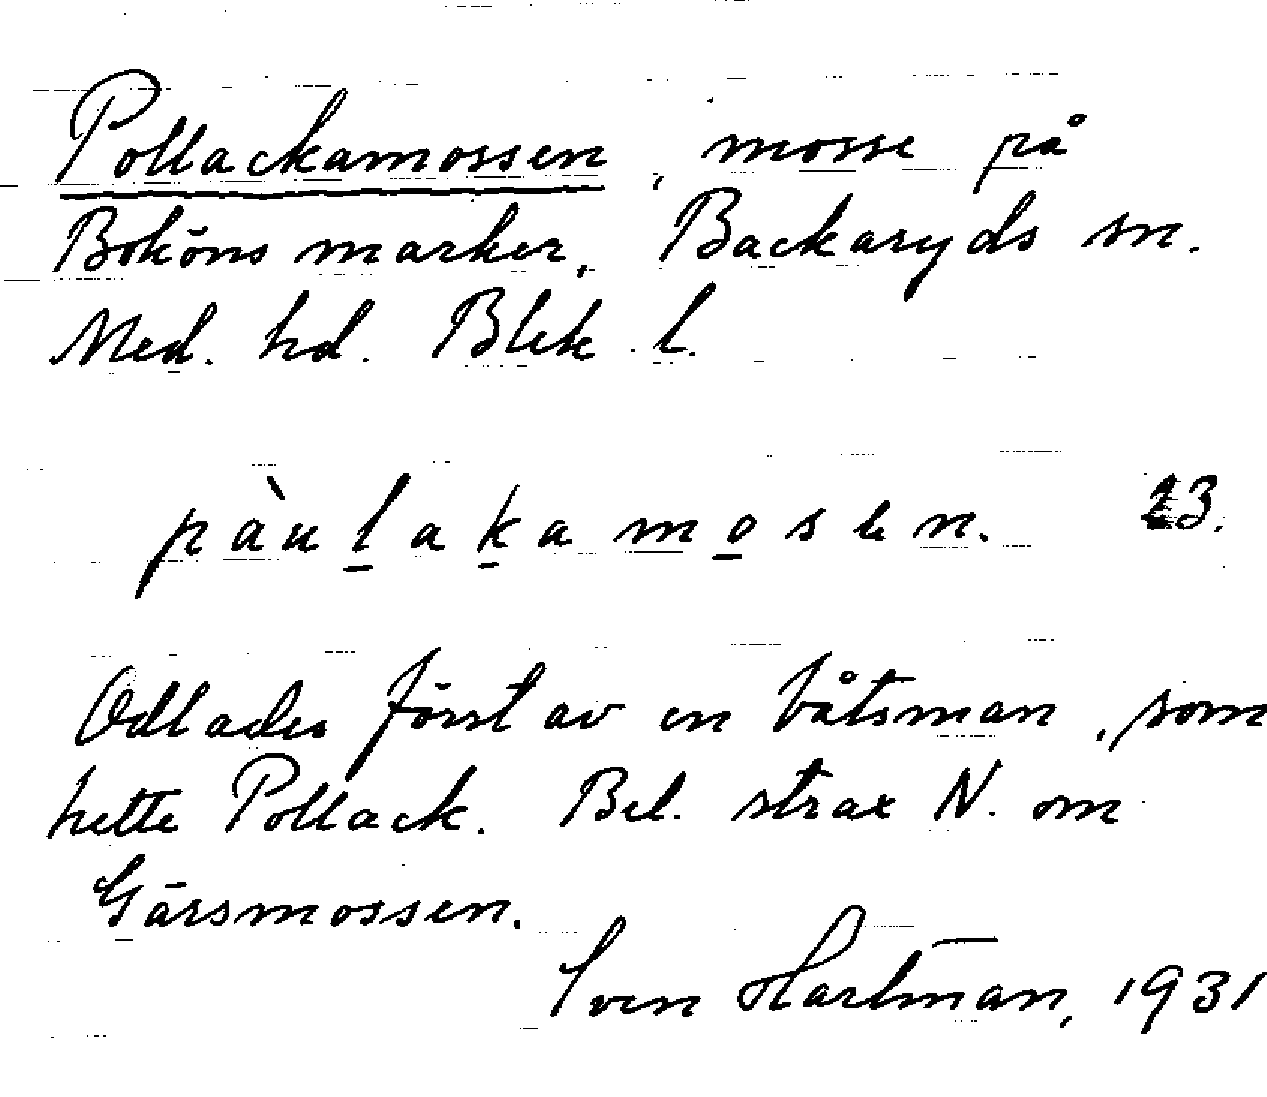 Pollackamossen, mosse på
Boköns marker, Backaryds sn.
Med. hd. Blek. l.
pàulakamosen. 23.
Odlades först av en båtsman, som
hette Pollack. Bel. strax N. om
Gärsmossen.
Sven Hartman, 1931